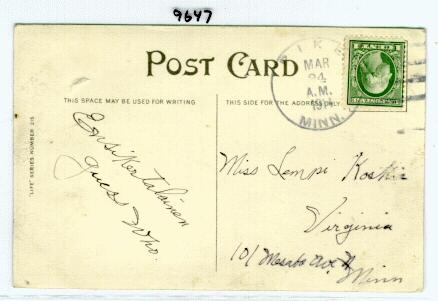 9647
POST CARD
THIS SPACE MAY BE USED FOR WRITING
THIS SIDE FOR THE ADDRESS ONLY
"LIFE" SERIES NUMBER 215
MAR
24
A.M.
MINN.
Ensikertalainen
guess Who.
Miss Lempi Koski
Virginia
101 Mesaba Av. N
Minn